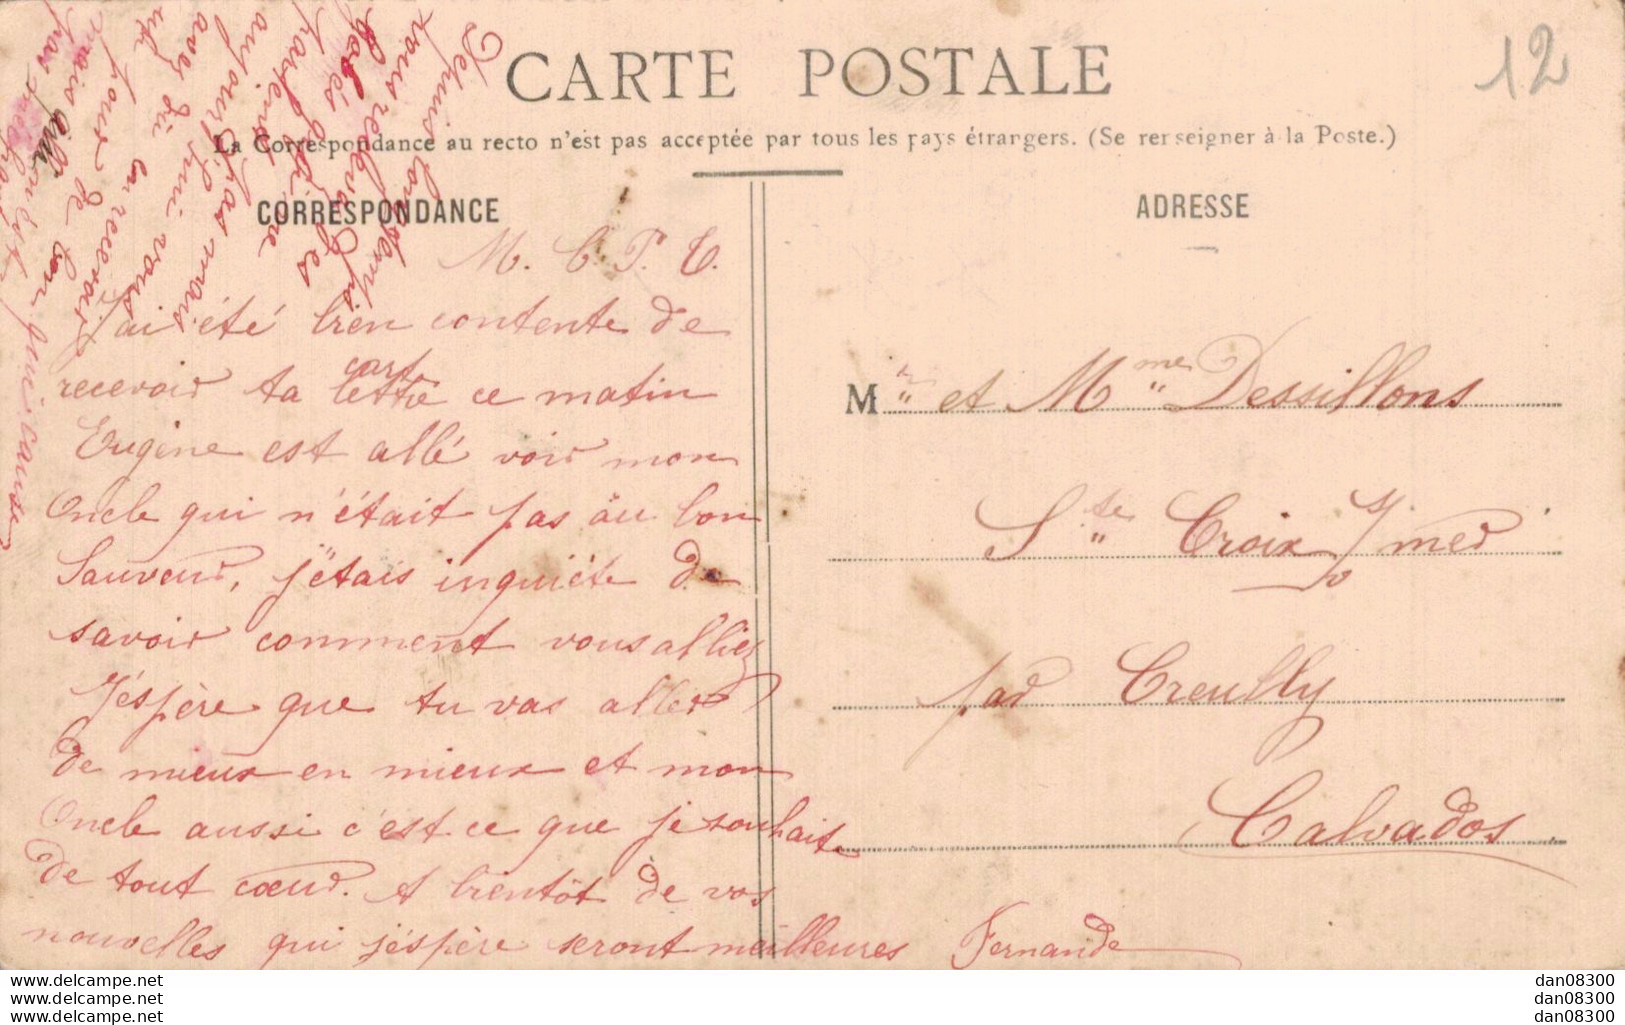 12
CARTE POSTALE
La Correspondance au recto n'est pas acceptée par tous les pays étrangers. (Se renseigner à la Poste.)
CORRESPONDANCE
M. C. P. T.
J'ai été bien contente de
recevoir ta carte ce matin
Eugène est allé voir mon
Oncle qui n'était pas au bon
Sauveur, j'étais inquiéte de
savoir comment vous alliez
J'éspère que tu vas aller
de mieux en mieux et mon
Oncle aussi c'est ce que je souhaite
de tout cœur. A bientôt de vos
nouvelles qui j'éspère seront meilleures Fernande
Depuis
aujourd'hui vous
pas mais
avez dû en recevoir
pour de bon
mais
qui cause
ADRESSE
Mr et Mme Dessillons
Ste Croix s/ mer
par Creully
Calvados
delcampe.net
delcampe.net
delcampe.net
dan08300
dan08300
dan08300